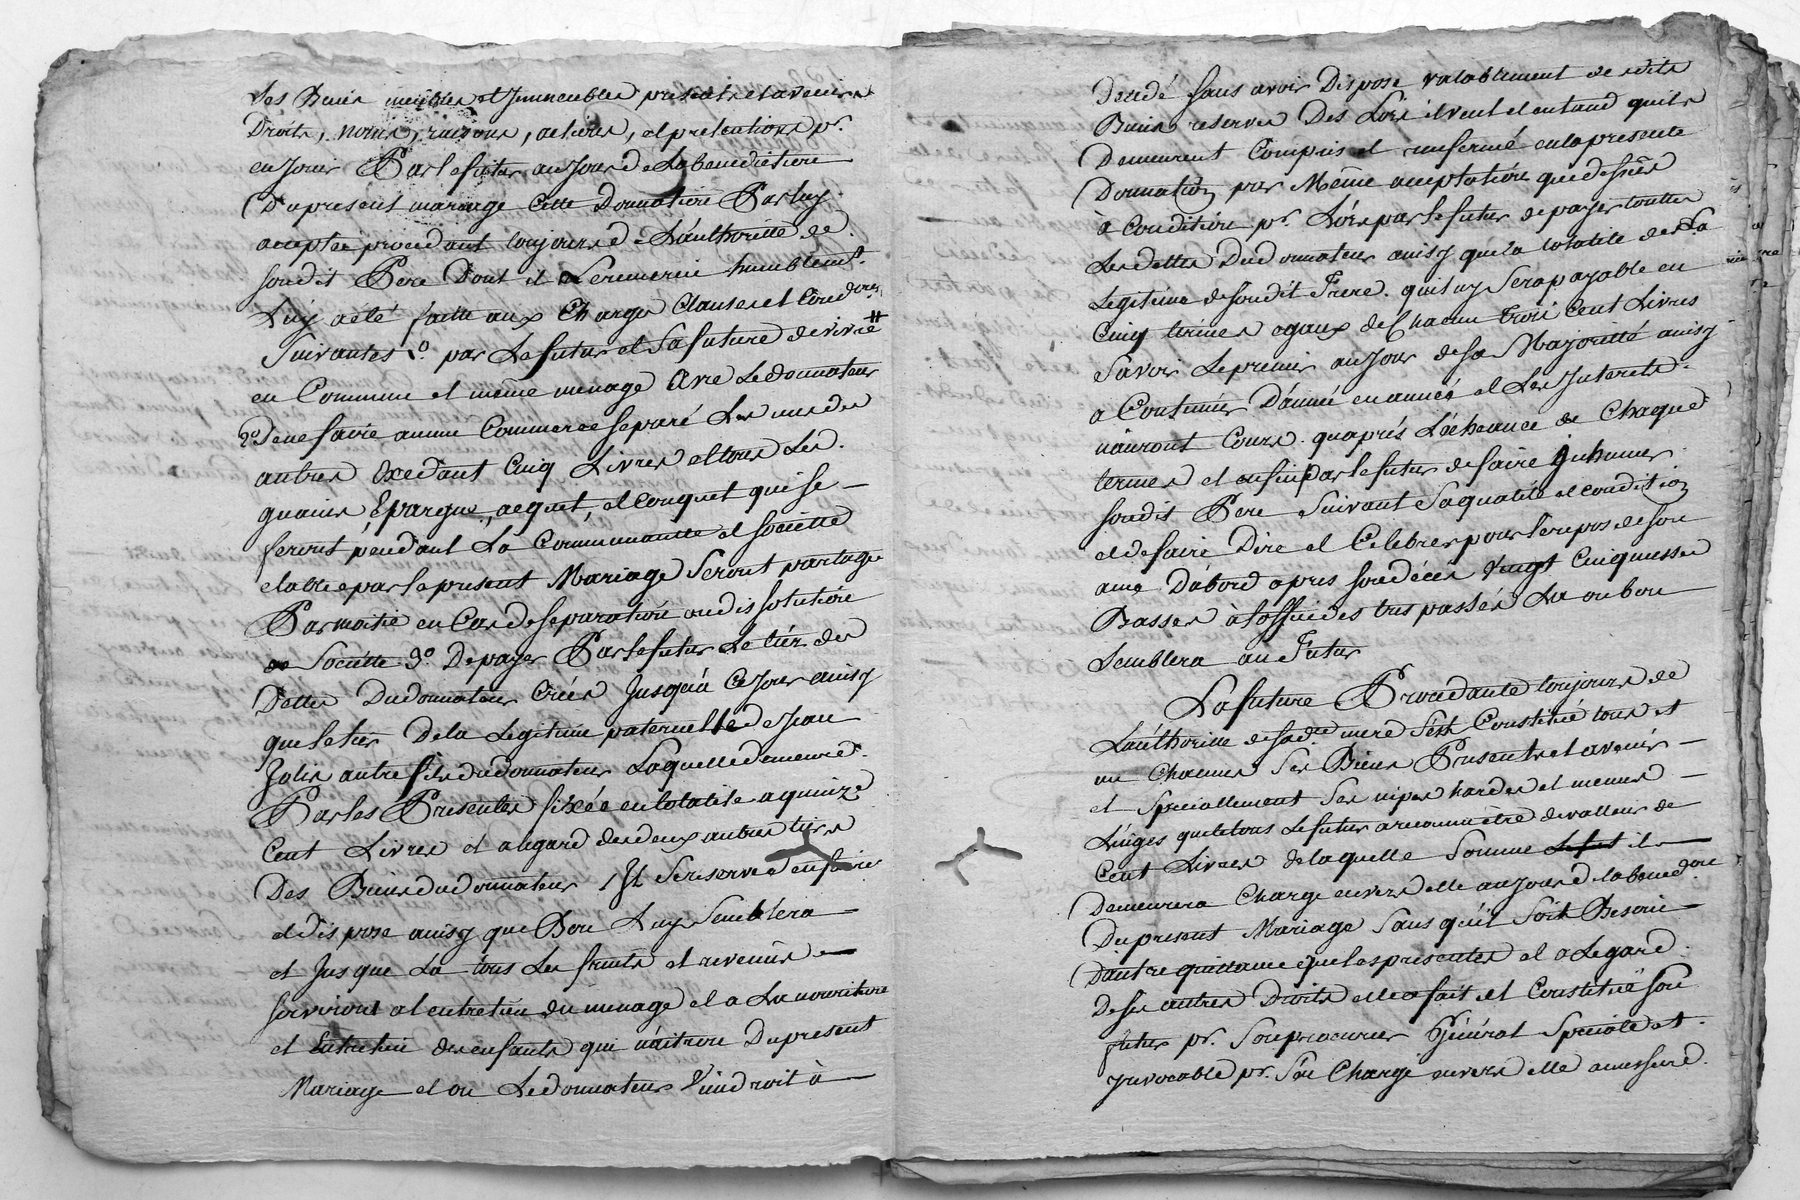 Ses Biens meubles et Immeubles presents et avenirs
Droits, noms, raisons, actions, et pretentions pr.
en Jouir Par le futur au Jour de La benediction
Du present mariage Cette Donnation Par luy
acceptée procedant toujours de L'authorité de
sondit Pere Dont il Le remercie humblemt.
Luy a eté faitte aux Charges Clauses et Condons
Suivantes 1o. par Le futur et La future de vivre #
en Commun et même menage Avec Le donnateur
2o De ne faire aucun Commerce separé Les uns des
autres Excedant Cinq Livres et tous Les
guains, Epargne, acquet, et conquet qui se
feront pendant La Communauté et societté
etablie par le present Mariage Seront partagé
Par moitié en Cas de separation ou dissolution
de Societte 3o. De payer Par le futur Le tiér des
Dettes Du donnateur Créés Jusqu'à Ce Jour ainsy
que le tier De la Legitime paternelle de Jean
Jolis autre fils du donnateur Laquelle demeure
Par les Presentes fixée en totalité a quinze
Cent Livres et a legard des deux autres tiers
Des Biens du donnateur Il Se reserve d'en faire
et dispose ainsy que Bon Luy Semblera
et Jusque La tous Les fruits et revenus
serviront a l'entretien du menage et a La nourriture
et Entretien des enfants qui naitront Du present
Mariage et ou Le donnateur Viendroit à
Decedé sans avoir Dispose valablement desdits
Biens reservés Des Lors il veut et entand qu'ils
Demeurent Compris et renfermé en la presente
Donnation par Même acceptation que desses
à Condition pr. Lors par le futur de payer toutte
Les dettes Du donnateur ainsy que la totalité de La
Legitime de sondit Frere qui luy Sera payable en
Cinq termes egaux de Chacun Trois Cent Livres
Savoir Le premier au Jour de sa Majorité ainsy
a Continuer D'année en année et Les Interets
n'auront Cours qu'aprés L'écheance de Chaque
termes et enfin par le futur de faire Inhumer
sondit Pere Suivant Sa qualité et condition
et de faire Dire et Celebrer pour le repos de son
ame D'abord apres son décés vingt Cinq messes
Basses à l'office des trepassés La ou bon
Semblera au Futur
La future Procedante toujours de
L'authorité de sadte mere S'est Constitué tous et
un Chacuns Ses Biens Presents et avenirs
et Speciallement Ses nipes hardes et menus
Linges que le tous Le futur a reconnu être de valleur de
Cent Livres de laquelle Somme il
Demeurera Charge envers elle au Jour de la bened.on
Du present Mariage Sans qu'il Soit Besoin
D'autre quittance que les presentes et a Legard
De ses autres Droits elle a fait et Constitué son
futur pr. Son procureur Général Speciale et
Irrevocable pr. S'en Chargé envers elle a mesure